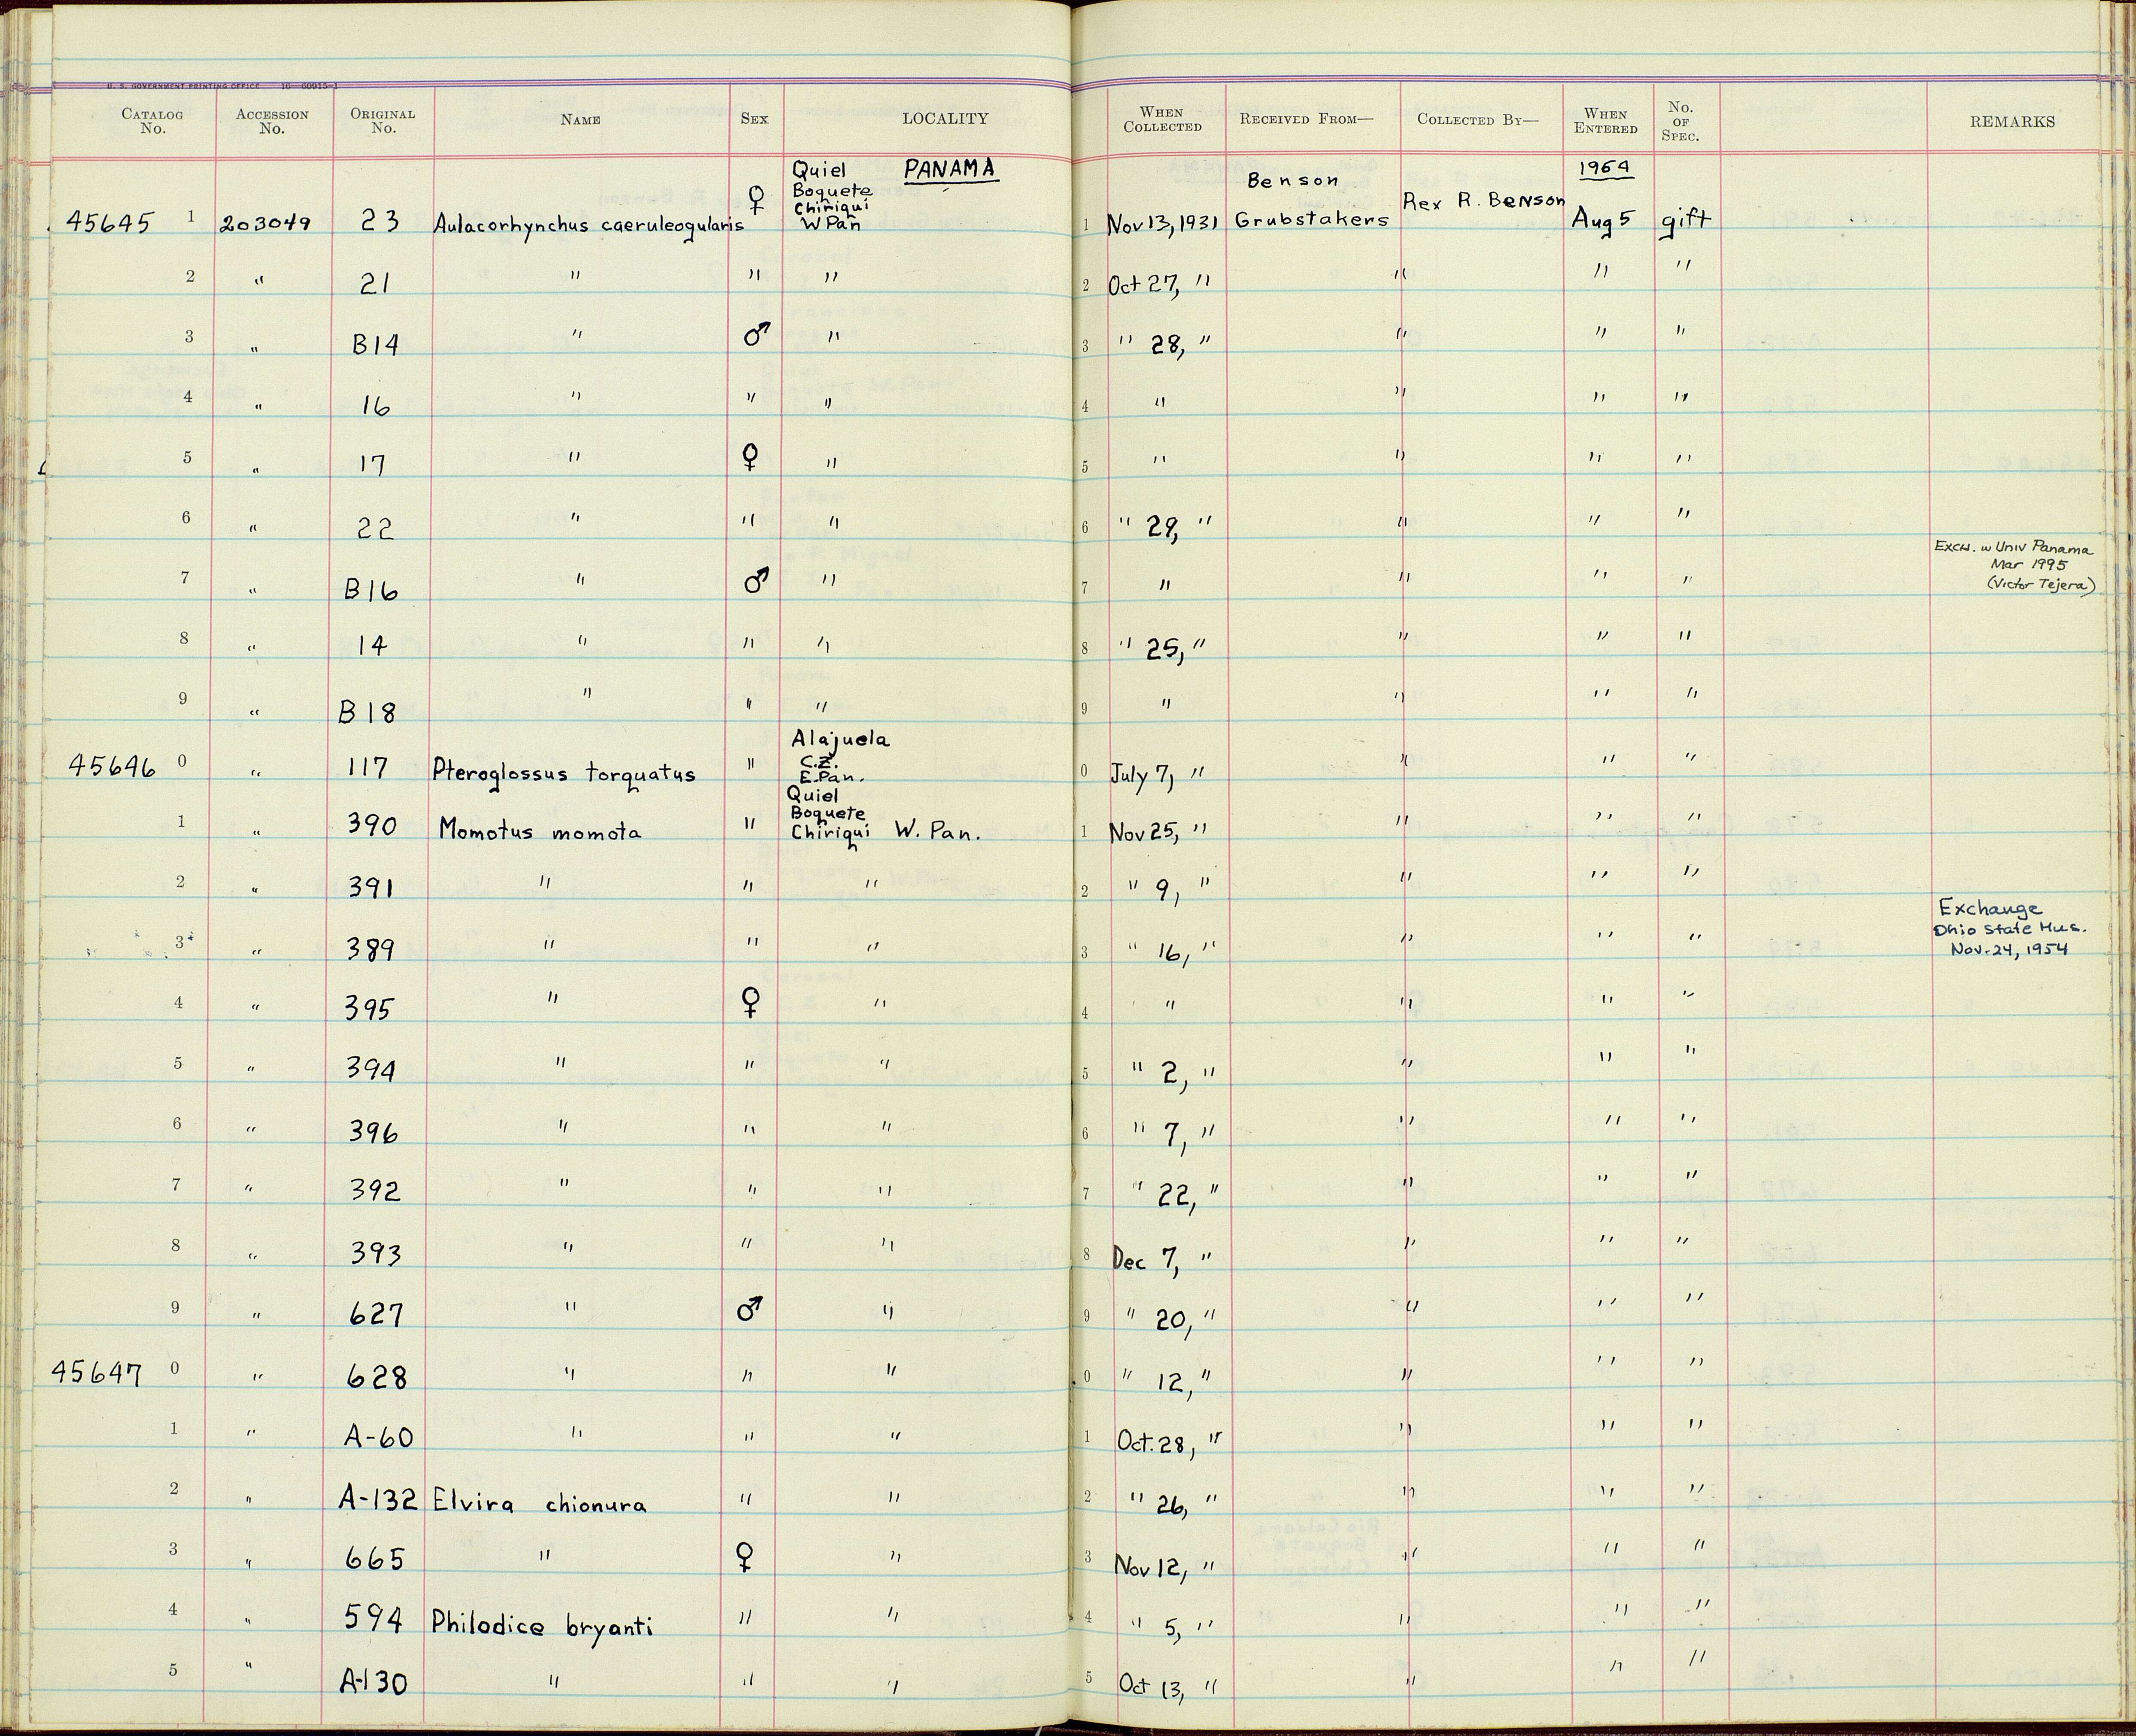 U. S. GOVERNMENT PRINTING OFFICE 16—60915-1
CATALOG No. ACCESSION No. ORIGINAL No. NAME SEX LOCALITY WHEN COLLECTED RECEIVED FROM— COLLECTED BY— WHEN ENTERED No. OF SPEC. REMARKS
Quiel PANAMA 1964
Boquete Benson
Chiriqui Rex R. Benson
45645 1 203049 23 Aulacorhynchus caeruleogularis ♀ W Pan 1 Nov 13, 1931 Grubstakers Aug 5 gift
2 " 21 " " " 2 Oct 27, " " " "
3 " B14 " ♂ " 3 " 28, " " " "
4 " 16 " " " 4 " " " "
5 " 17 " ♀ " 5 " " " "
6 " 22 " " " 6 " 29, " " " "
Exch. w Univ Panama
Mar 1995
7 " B16 " ♂ " 7 " " " " (Victor Tejera)
8 " 14 " " " 8 " 25, " " " "
9 " B18 " " " 9 " " " "
Alajuela
C.Z.
45646 0 " 117 Pteroglossus torquatus " E.Pan. 0 July 7, " " " "
Quiel
Boquete
1 " 390 Momotus momota " Chiriqui W. Pan. 1 Nov 25, " " " "
2 " 391 " " " 2 " 9, " " " "
Exchange
Ohio State Mus.
3 " 389 " " " 3 " 16, " " " " Nov. 24, 1954
4 " 395 " ♀ " 4 " " " "
5 " 394 " " " 5 " 2, " " " "
6 " 396 " " " 6 " 7, " " " "
7 " 392 " " " 7 " 22, " " " "
8 " 393 " " " 8 Dec 7, " " " "
9 " 627 " ♂ " 9 " 20, " " " "
45647 0 " 628 " " " 0 " 12, " " " "
1 " A-60 " " " 1 Oct. 28, " " " "
2 " A-132 Elvira chionura " " 2 " 26, " " " "
3 " 665 " ♀ " 3 Nov 12, " " " "
4 " 594 Philodice bryanti " " 4 " 5, " " " "
5 " A-130 " " " 5 Oct 13, " " " "